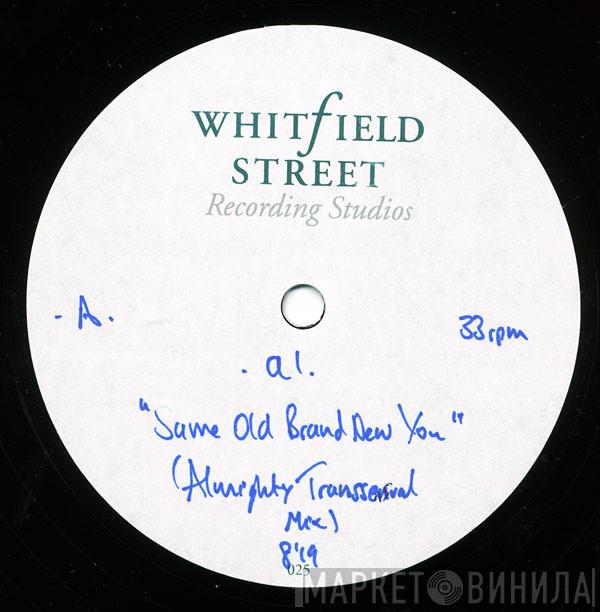 WHITfIELD
STREET
Recording Studios
. A .
33rpm
. a1 .
"Same Old Brand New You"
(Almighty Transsensual
Mix)
8'19
025
МАРКЕТ ВИНИЛА